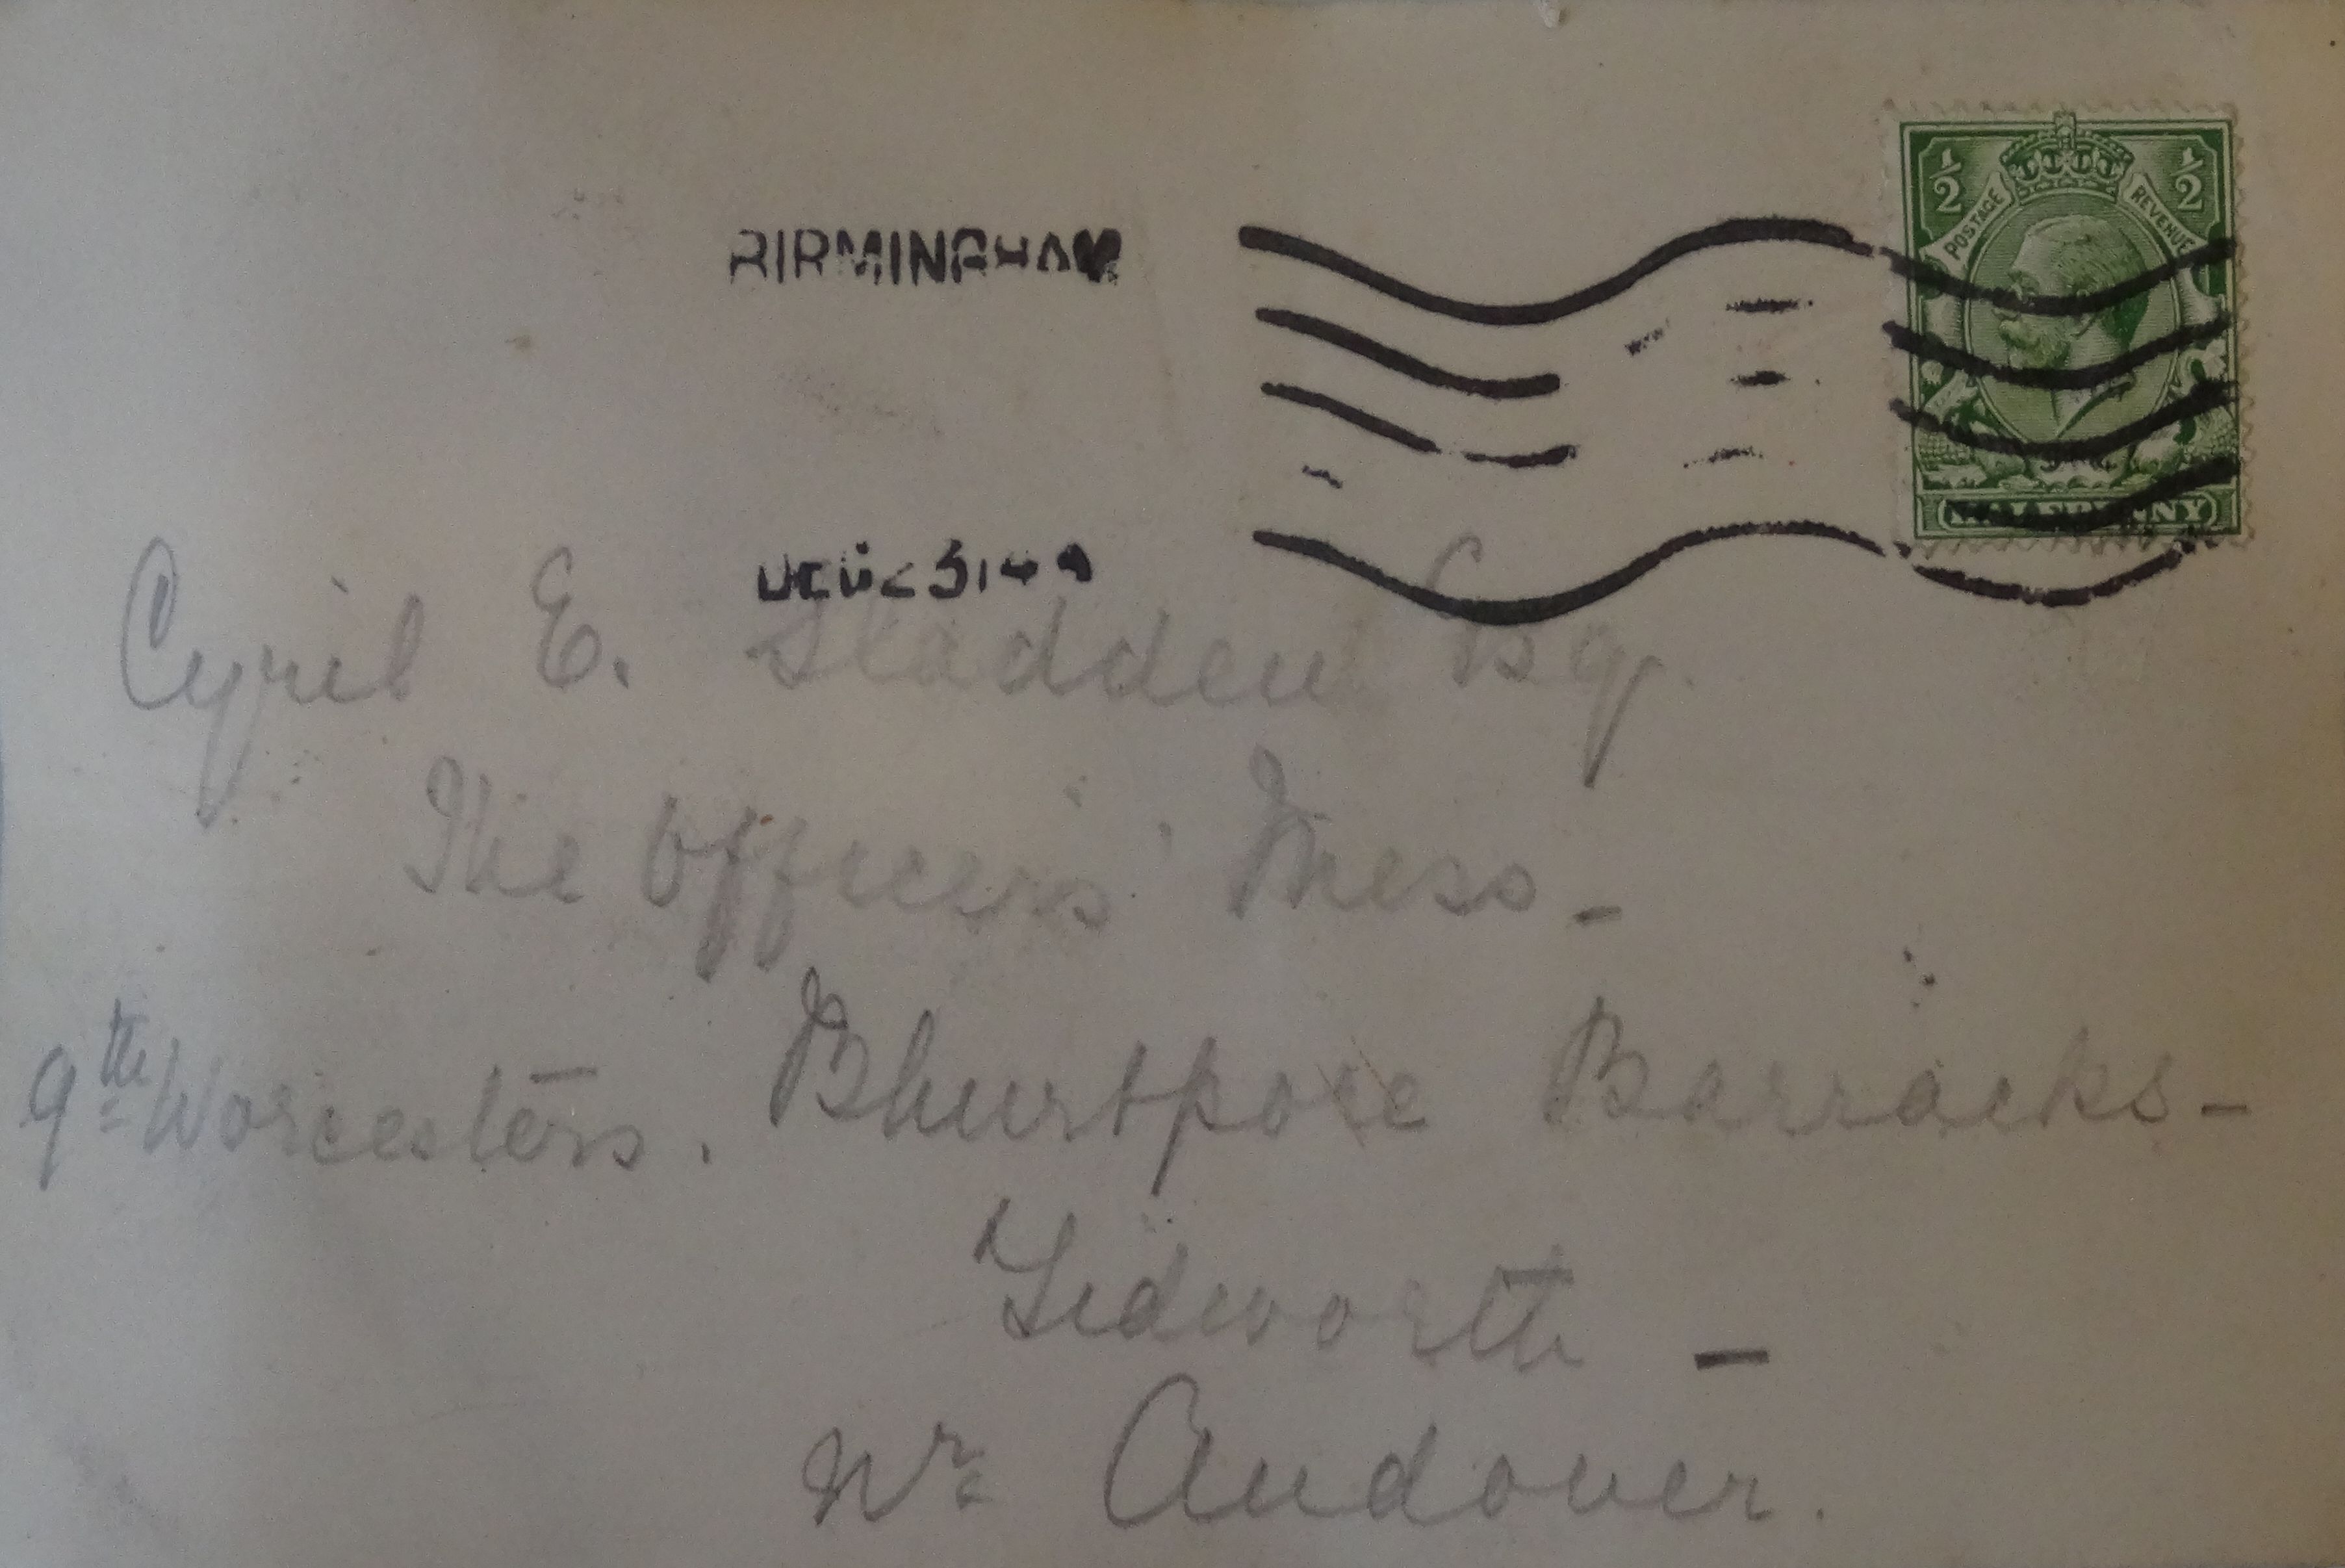 BIRMINGHAM
½ POSTAGE REVENUE ½
HALFPENNY
Cyril E. Sladden Esq.
The Officers' Mess –
9th Worcesters. Bhurtpore Barracks –
Tidworth –
Nr Andover.